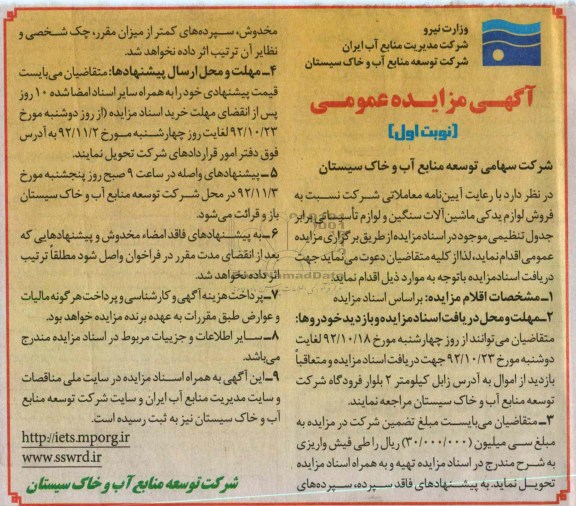 وزارت نیرو
شرکت مدیریت منابع آب ایران
شرکت توسعه منابع آب و خاک سیستان
آگهی مزایده عمومی
(نوبت اول)
شرکت سهامی توسعه منابع آب و خاک سیستان
در نظر دارد با رعایت آیین‌نامه معاملاتی شرکت نسبت به
فروش لوازم یدکی ماشین‌آلات سنگین و لوازم تأسیساتی برابر
جدول تنظیمی موجود در اسناد مزایده از طریق برگزاری مزایده
عمومی اقدام نماید، لذا از کلیه متقاضیان دعوت می‌نماید جهت
دریافت اسناد مزایده باتوجه به موارد ذیل اقدام نمایند.
۱ـ مشخصات اقلام مزایده: براساس اسناد مزایده
۲ـ مهلت و محل دریافت اسناد مزایده و بازدید خودروها:
متقاضیان می‌توانند از روز چهارشنبه مورخ ۹۲/۱۰/۱۸ لغایت
دوشنبه مورخ ۹۲/۱۰/۲۳ جهت دریافت اسناد مزایده و متعاقباً
بازدید از اموال به آدرس زابل کیلومتر ۲ بلوار فرودگاه شرکت
توسعه منابع آب و خاک سیستان مراجعه نمایند.
۳ـ متقاضیان می‌بایست مبلغ تضمین شرکت در مزایده به
مبلغ سی میلیون (۳۰/۰۰۰/۰۰۰) ریال را طی فیش واریزی
به شرح مندرج در اسناد مزایده تهیه و به همراه اسناد مزایده
تحویل نماید. به پیشنهادهای فاقد سپرده، سپرده‌های
مخدوش، سپرده‌های کمتر از میزان مقرر، چک شخصی و
نظایر آن ترتیب اثر داده نخواهد شد.
۴ـ مهلت و محل ارسال پیشنهادها: متقاضیان می‌بایست
قیمت پیشنهادی خود را به همراه سایر اسناد امضا شده ۱۰ روز
پس از انقضای مهلت خرید اسناد مزایده (از روز دوشنبه مورخ
۹۲/۱۰/۲۳ لغایت روز چهارشنبه مورخ ۹۲/۱۱/۲ به آدرس
فوق دفتر امور قراردادهای شرکت تحویل نمایند.
۵ـ پیشنهادهای واصله در ساعت ۹ صبح روز پنجشنبه مورخ
۹۲/۱۱/۳ در محل شرکت توسعه منابع آب و خاک سیستان
باز و قرائت می‌شود.
۶ـ به پیشنهادهای فاقد امضاء مخدوش و پیشنهادهایی که
بعد از انقضای مدت مقرر در فراخوان واصل شود مطلقاً ترتیب
اثر داده نخواهد شد.
۷ـ پرداخت هزینه آگهی و کارشناسی و پرداخت هر گونه مالیات
و عوارض طبق مقررات به عهده برنده مزایده خواهد بود.
۸ـ سایر اطلاعات و جزییات مربوط در اسناد مزایده مندرج
می‌باشد.
۹ـ این آگهی به همراه اسناد مزایده در سایت ملی مناقصات
و سایت مدیریت منابع آب ایران و سایت شرکت توسعه منابع
آب و خاک سیستان نیز به ثبت رسیده است.
http://iets.mporg.ir
www.sswrd.ir
شرکت توسعه منابع آب و خاک سیستان